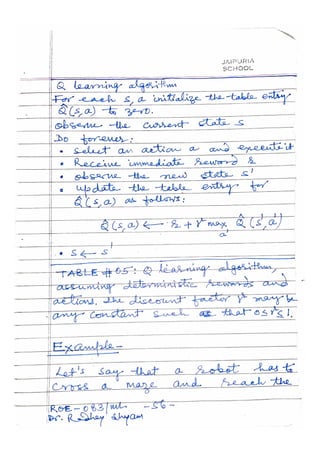 JAIPURIA
SCHOOL
Q learning algorithm
For each s, a initialize the table entry
Q̂(s,a) to zero.
Observe the current state s
Do forever:
• Select an action a and execute it
• Receive immediate reward r
• observe the new state s'
• update the table entry for
Q̂(s,a) as follows:
Q̂(s,a) ← r + γ max Q̂(s',a')
a'
• s ← s'
TABLE # 05: Q learning algorithm,
assuming deterministic rewards and
actions. The discount factor γ may be
any constant such as that 0≤γ≤1.
Example -
Let's say that a robot has to
cross a maze and reach the
ROE-083/ML -56-
Dr. Radhey Shyam